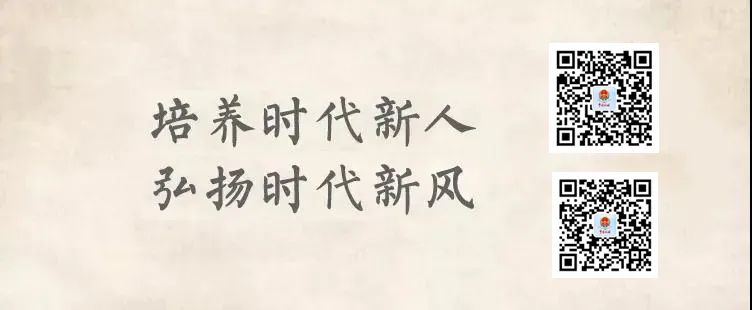 培养时代新人
弘扬时代新风